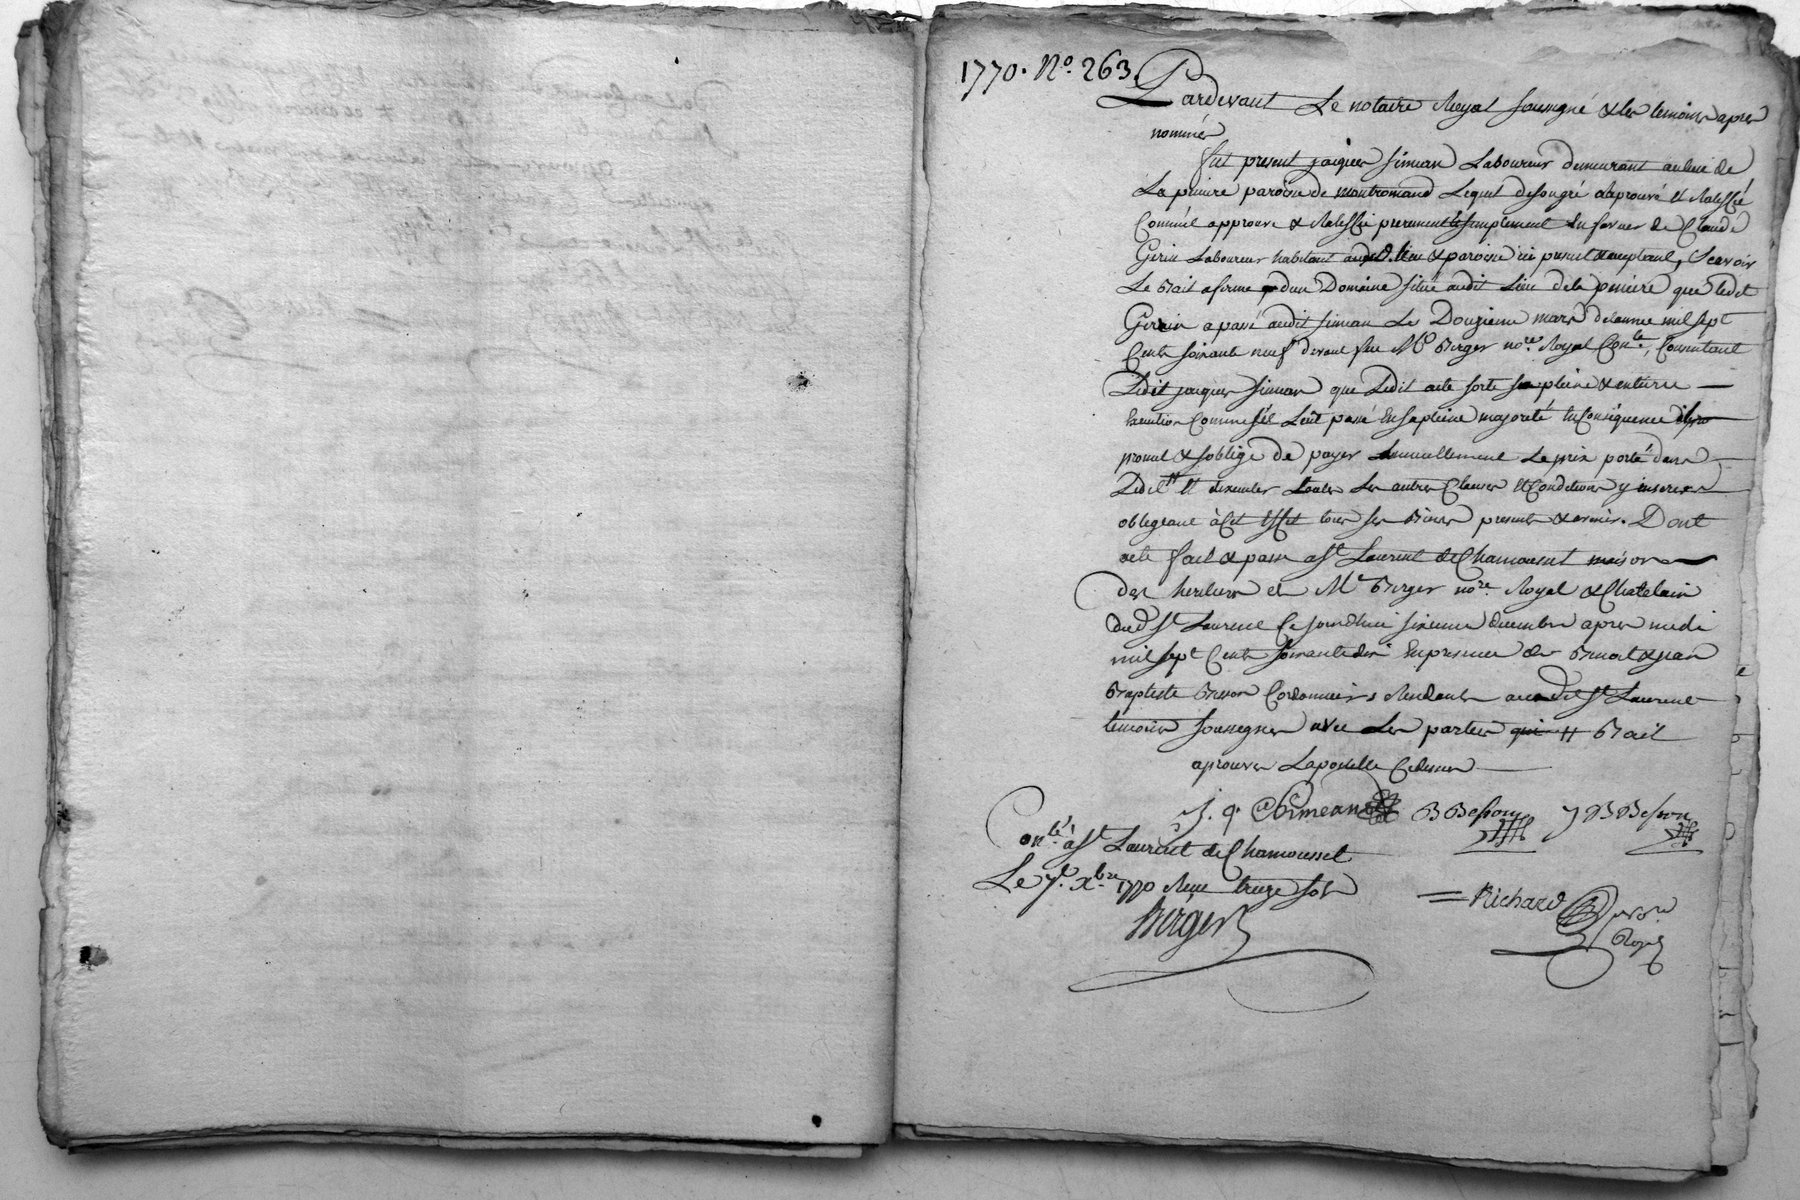 1770. No. 263.
Pardevant Le notaire Royal soussigné & les temoins apres
nommés
fut present jacques simean Laboureur demeurant au lieu de
La piniere paroisse de montromand Lequel de son gré a approuvé et Ratiffié
Comme il approuve & Ratiffie purement et simplement En faveur de Claude
Gerin Laboureur habitant audt. lieu & paroisse ici present & acceptant, Scavoir
Le Bail a ferme d'un Domaine situé audit Lieu de la piniere que ledit
Gerin a passé audit simean Le Douzieme mars de l'annee mil sept
Cent soixante neuf devant feu Me Berger nore. Royal Conté., Consentant
Ledit jacques simean que Ledit acte sorte sa pleine & entiere
Execution Comme s'il L'eut passé En sa pleine majorité En Consequence il
promet & s'oblige de payer annuellement Le prix porté dans
Ledit # Et d'executer toutes Les autres Clauses Et Conditions y inserées
obligeant à Cet Effet tous ses Biens presents & avenir. Dont
acte fait & passé a St Laurent de Chamousset maison
des heritiers de Me Berger nore. Royal & Chatelain
dud St Laurent Ce jourd'hui sixieme decembre apres midi
mil sept Cent soixante dix En presence de Benoit & jean
Baptiste Besson Cordonniers Residants audit St Laurent
temoins soussignes avec Les parties qui # Bail
aprouvés L'apostille Cidessus
B Besson J B Besson
Conté. à St Laurent de Chamousset
Le 7e. Xbre 1770 Reçu treize sols
Berger
Richard